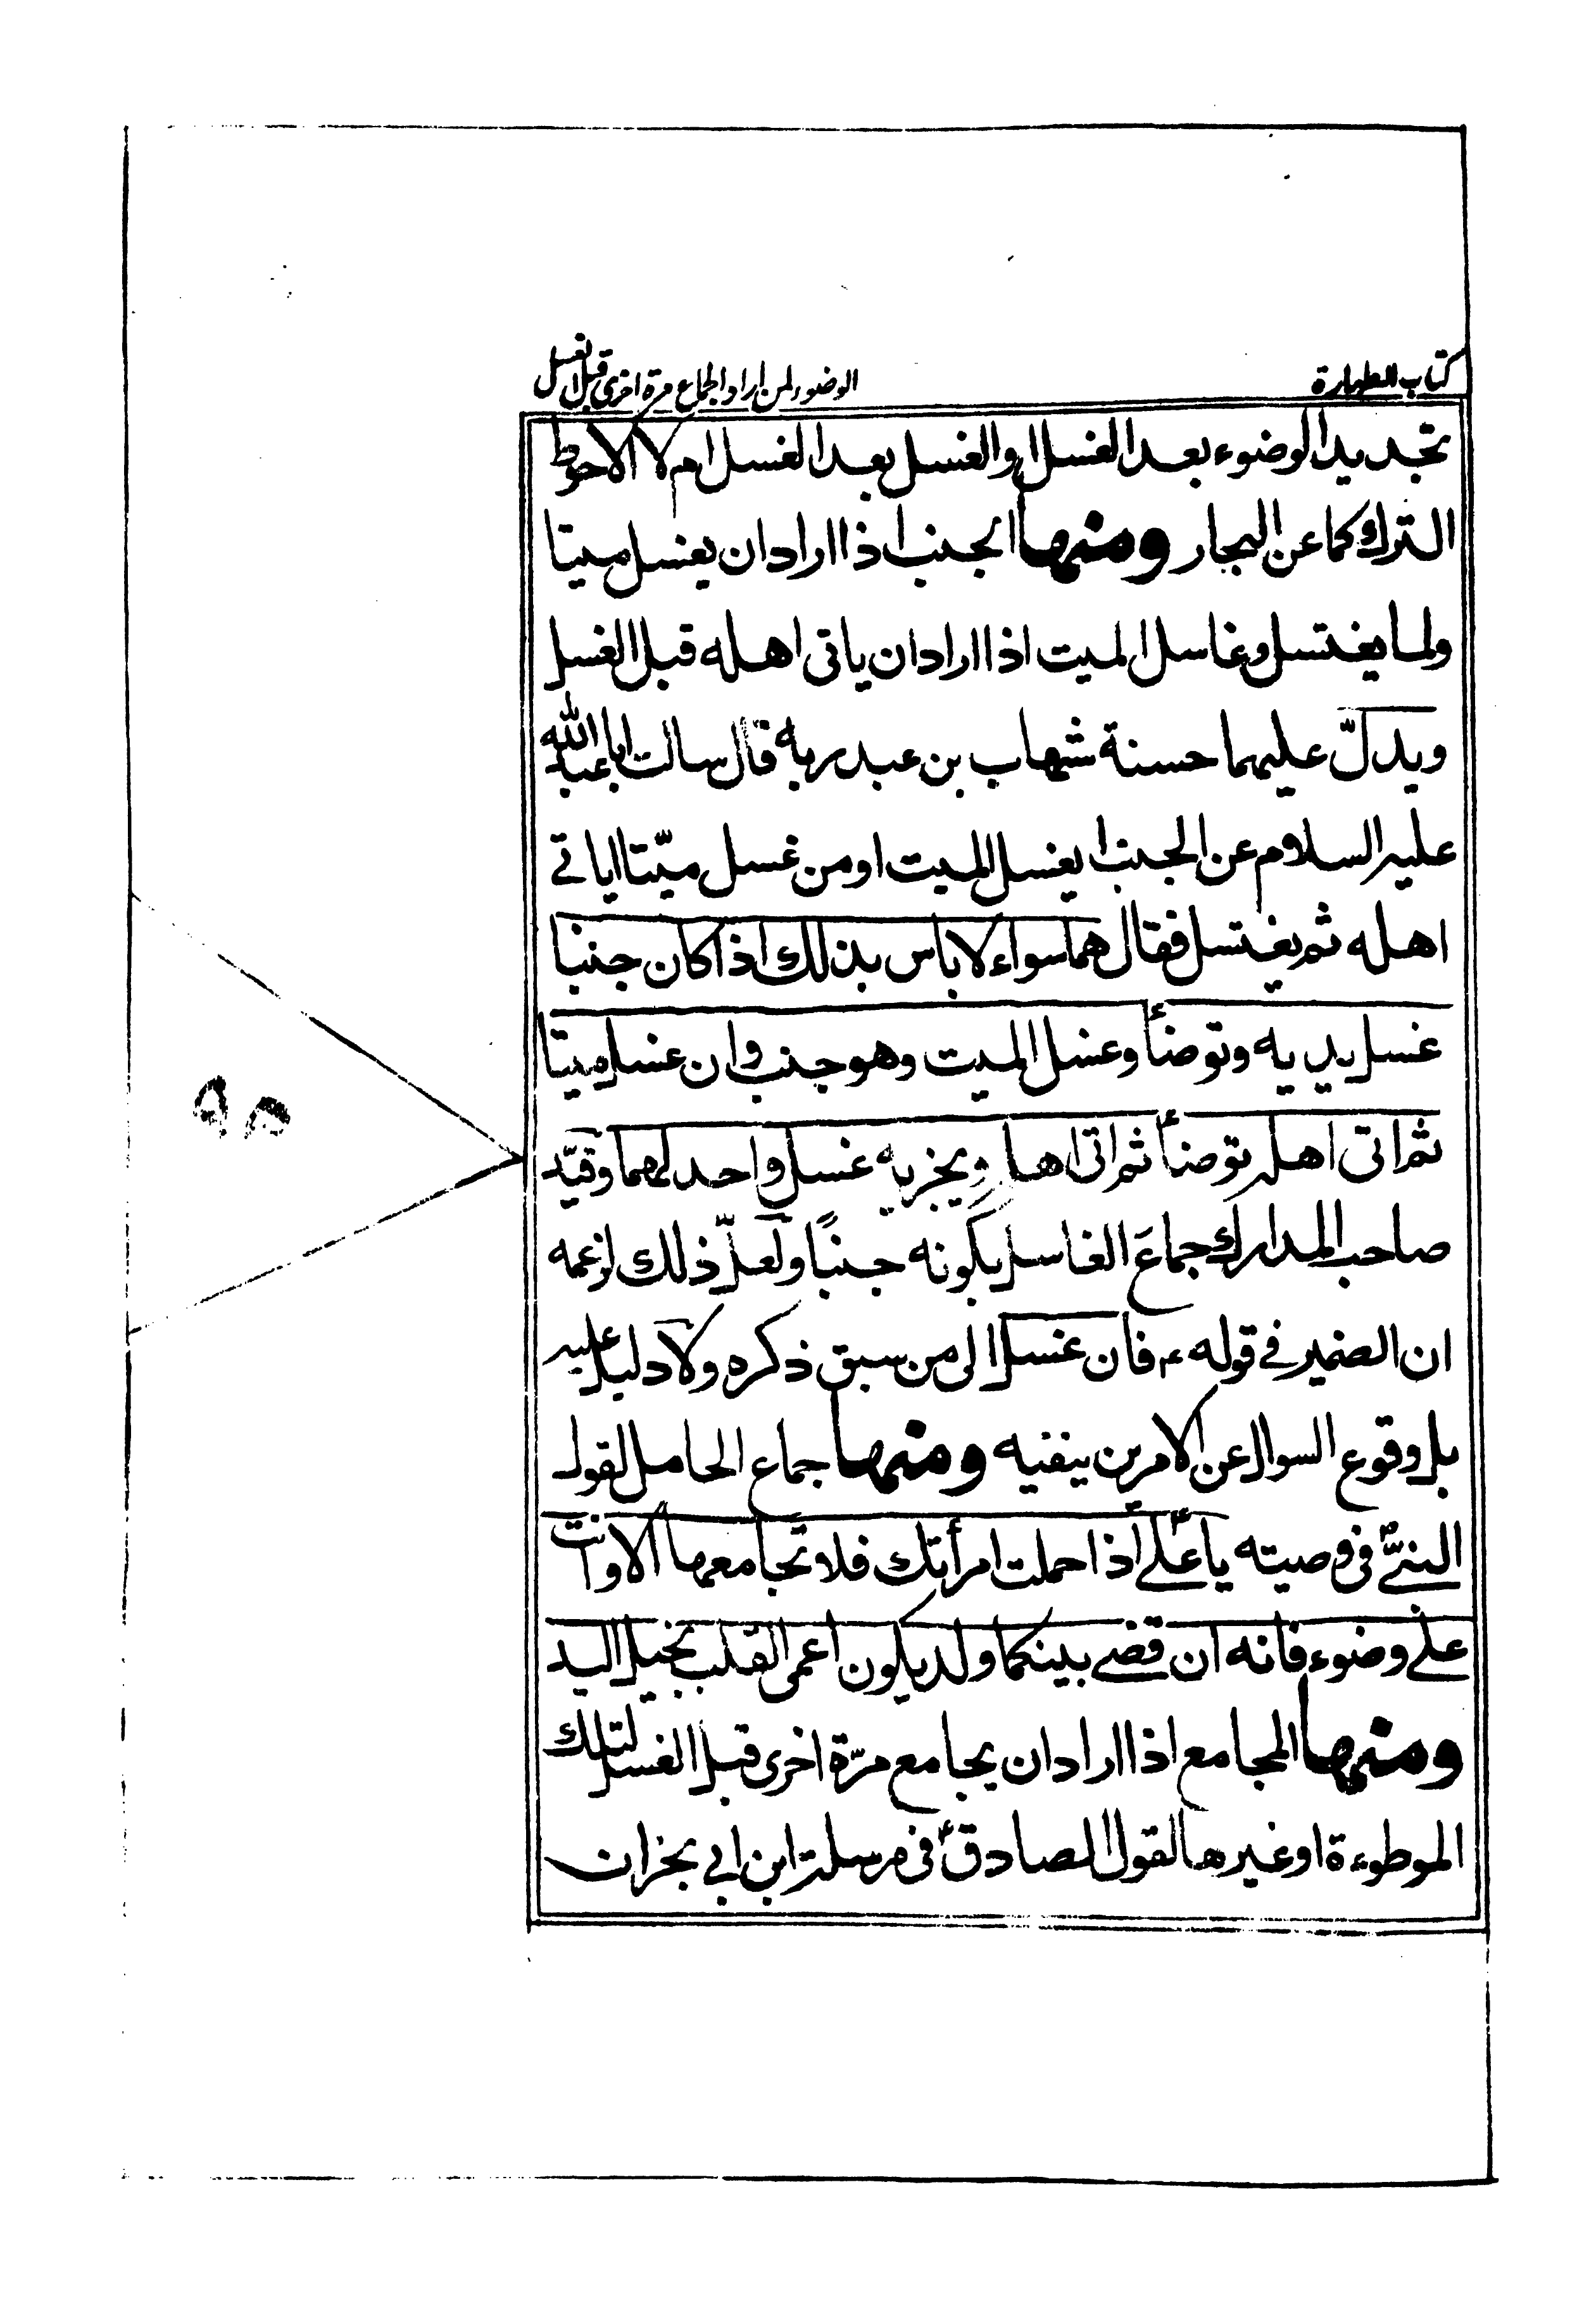 كتاب الطهارة
الوضوء لمن اراد الجماع مرة اخرى قبل الغسل
تجديد الوضوء بعد الغسل او الغسل بعد الغسل ام لا الاحوط
الترك كما عن البحار ومنها الجنب اذا اراد ان يغسل ميتا
ولما يغتسل وغاسل الميت اذا اراد ان ياتى اهله قبل الغسل
ويدلّ عليهما حسنة شهاب بن عبد ربه قال سالت ابا عبد الله
عليه السلام عن الجنب ايغسل الميت او من غسل ميّتا اياتى
اهله ثم يغتسل فقال هما سواء لا باس بذلك اذا كان جنبا
غسل يديه وتوضأ وغسل الميت وهو جنب وان غسل ميتا
ثم اتى اهله توضأ ثم اتى اهله ويجزيه غسل واحد لهما وقيّد
صاحب المدارك جماعَ الغاسل بكونه جنبًا ولعلّ ذلك لزعمه
ان الضمير في قوله ع فان غسل الى من سبق ذكره ولا دليل عليه
بل وقوع السوال عن الامرين ينفيه ومنها جماع الحامل لقول
النبيّ فى وصيته يا علي أذا حملت امرأتك فلا تجامعها الا وانت
على وضوء فانه ان قضى بينكما ولد يكون اعمى القلب بخيل اليد
ومنها المجامع اذا اراد ان يجامع مرّة اخرى قبل الغسل لتلك
الموطوءة او غيرها لقول الصادق فى مرسلة ابن ابي نجران